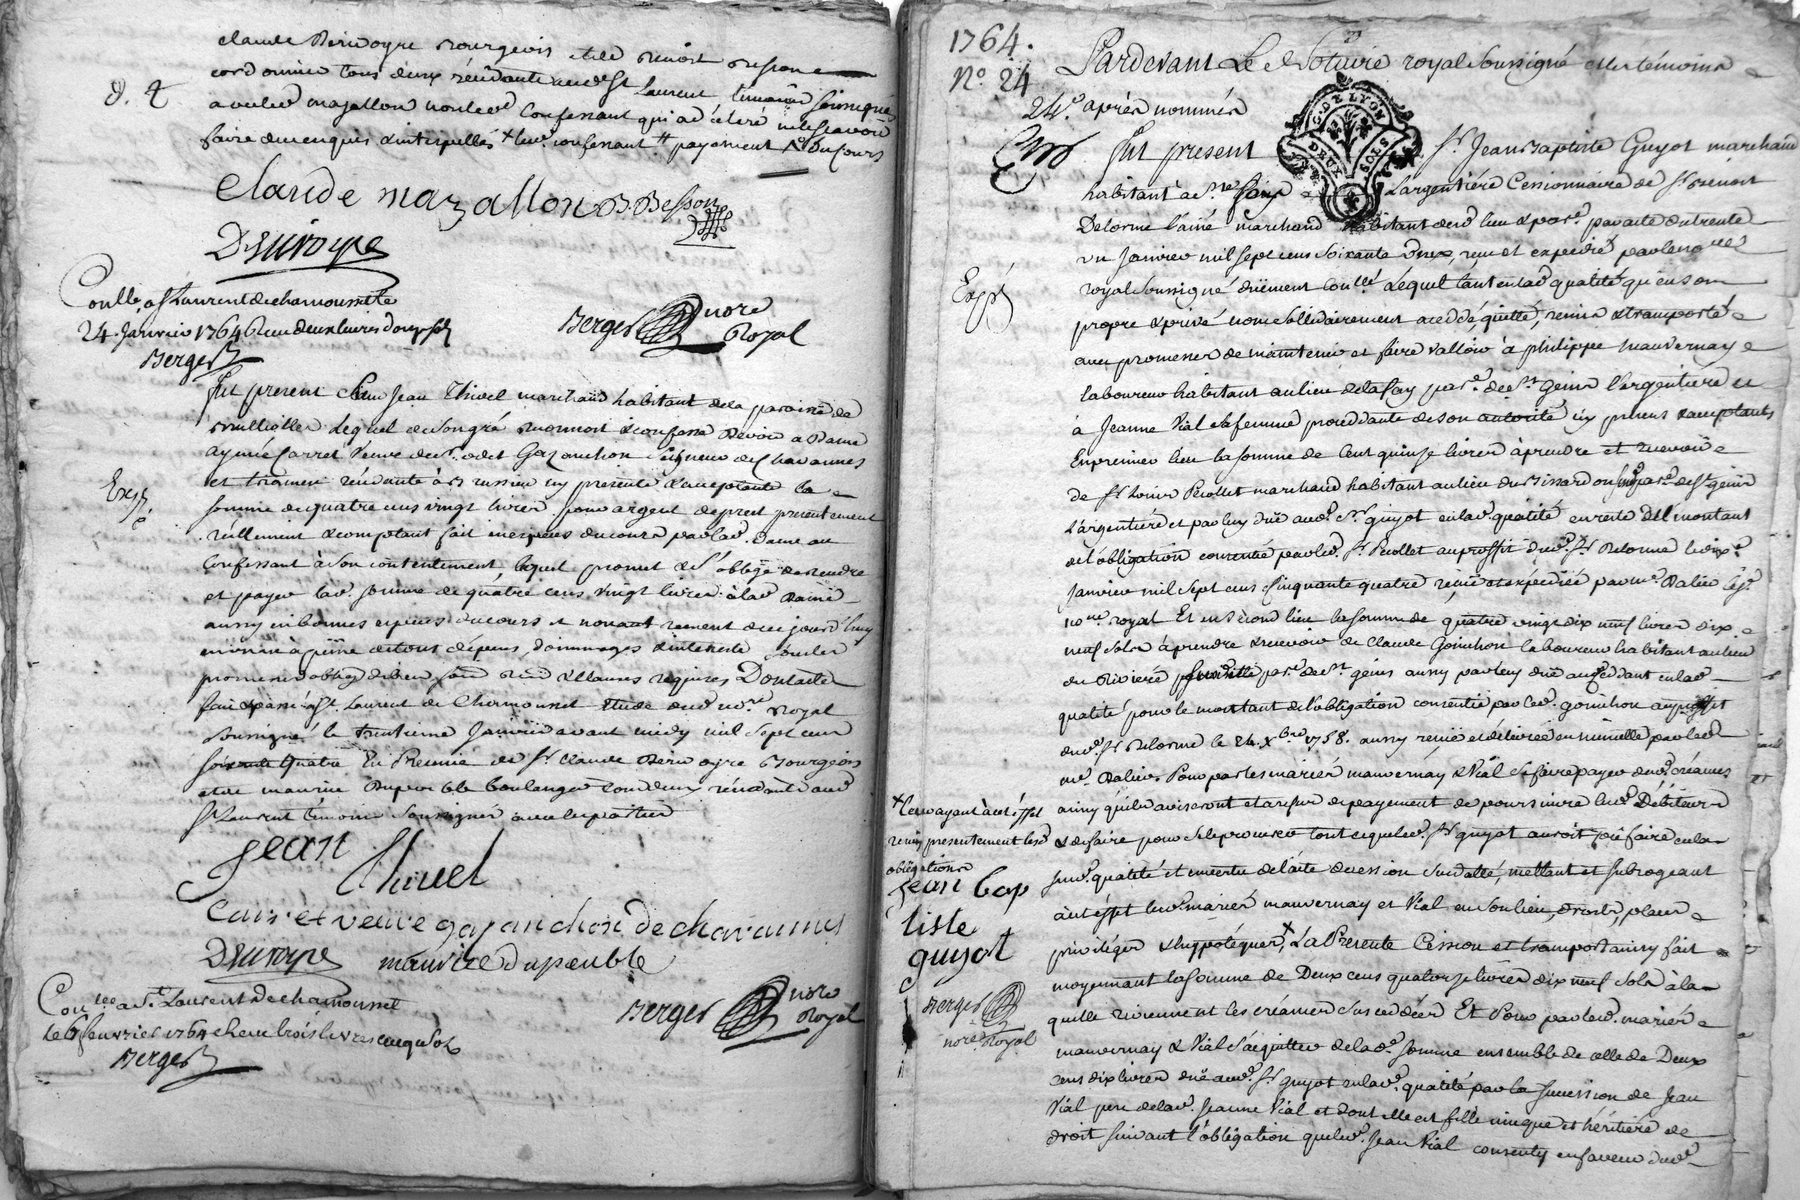 claude Derivoyre Bourgeois et de Benoist Besson
cordonnier tous deux résidants aud. St Laurent témoins soussignés
avec led. mazallon non led. confessant qui a déclaré ne le scavoir
faire de ce enquis & interpellés
Claude mazallon B. Besson
Deriroyre
Conllé a St Laurent de chamoussette
24. Janvier 1764 Receu deux livres
Berger
Berger nore
Royal
fut present Sieur Jean Thivel marchand habitant de la paroisse de
lequel de son gré reconnoit & confesse devoir a Dame
aymée Carret Veuve de Sr. odet Gazanchon Seigneur de Chavannes
et résidante à présente & acceptante la
somme de quatre cens vingt livres pour argent de prest présentement
réellement & comptant fait en espèces du cours par lad. Dame au
Confessant à son contentement, lequel promet et s'oblige de rendre
et payer lad. somme de quatre cens vingt livres à lad. Dame
aussy en bonnes espèces du cours
à peine de tous dépens, dommages & intérests
promesses obligations & clauses requises Dont acte
fait & passé à St Laurent de Chamousset étude dud. nore Royal
soussigné le trentieme Janvier avant midy mil sept cens
soixante quatre En Présence de Sr Claude Derivoyre Bourgeois
et de maurice Dupeuble boulanger tous deux résidants aud.
St Laurent témoins soussignés avec les parties
Jean Thivel
Carret veuve gazanchon de chavannes
Deriroyre maurice dupeuble
Berger nore
Royal
Conllé a St Laurent de chamousset
le 6 feuvrier 1764 Receu trois livres cinq sols
Berger
1764.
No. 24
Pardevant Le Notaire royal soussigné et les témoins
24e. après nommés
G. DE LYON
DEUX SOLS
fut present Sr. Jean Baptiste Guyot marchand
habitant à St Genis Largentière Cessionnaire de Sr Benoist
Delorme l'aîné marchand habitant dud. lieu & parse. par acte du trente
un Janvier mil sept cens soixante deux, reçu et expédié par le nore
royal soussigné düement conllé. Lequel tant en lad. qualité qu'en son
propre & privé nom solidairement a cédé, quitté, remis & transporté
avec promesses de maintenir et faire valloir à philippe mauvernay
laboureur habitant au lieu de la fay parse. de St. genis l'argentière et
à Jeanne Vial sa femme procédante de son autorité icy présens & acceptants
En premier lieu la somme de Cent quinze livres à prendre et recevoir
de Sr. Perollet marchand habitant au lieu parse. de St. genis
Largentière et par luy düe aud. Sr. guyot en lad. qualité en reste del montant
de l'obligation consentie par led. Sr. Perollet au proffit dud. Sr Delorme
Janvier mil sept cens cinquante quatre reçue & expédiée par me. Dalier
nore royal Et en second lieu la somme de quatre vingt dix neuf livres dix
neuf sols à prendre & recevoir de Claude Goinchon laboureur habitant au lieu
de Riviere parse. de St genis aussy par luy düe au Cédant en lad.
qualité pour le montant de l'obligation consentie par led. goinchon au proffit
dud. Sr. Delorme le 24. xbre 1758. aussy reçue et délivrée en minutte par led.
me Dalier. Pour par les mariés mauvernay & Vial se faire payer desd. créances
ainsy qu'ils aviseront et a refus de payement de poursuivre lesd. Débiteurs
& de faire pour se le procurer tout ce que led. Sr guyot auroit pû faire en la
sud. qualité et en vertu de l'acte de cession susdatté, mettant et subrogeant
à cet effet lesd. mariés mauvernay et Vial en son lieu, droits, place
privilèges & hyppotèques, x La Présente Cession et transport ainsy fait
moyennant la somme de Deux cens quatorze livres dix neuf sols à la
quelle reviennent les créances sus cédées Et Pour par lesd. mariés
mauvernay & Vial s'acquitter de lad. somme ensemble de celle de Deux
cens dix livres düe aud. Sr guyot en lad. qualité par la succession de Jean
Vial pere de lad. Jeanne Vial et dont elle est fille unique et héritière de
droit suivant l'obligation que led. Jean Vial consenty en faveur dud.
x Leur ayant à cet effet
remis presentement lesd.
obligations
Jean bap
tiste
guyot
Berger
nore Royal